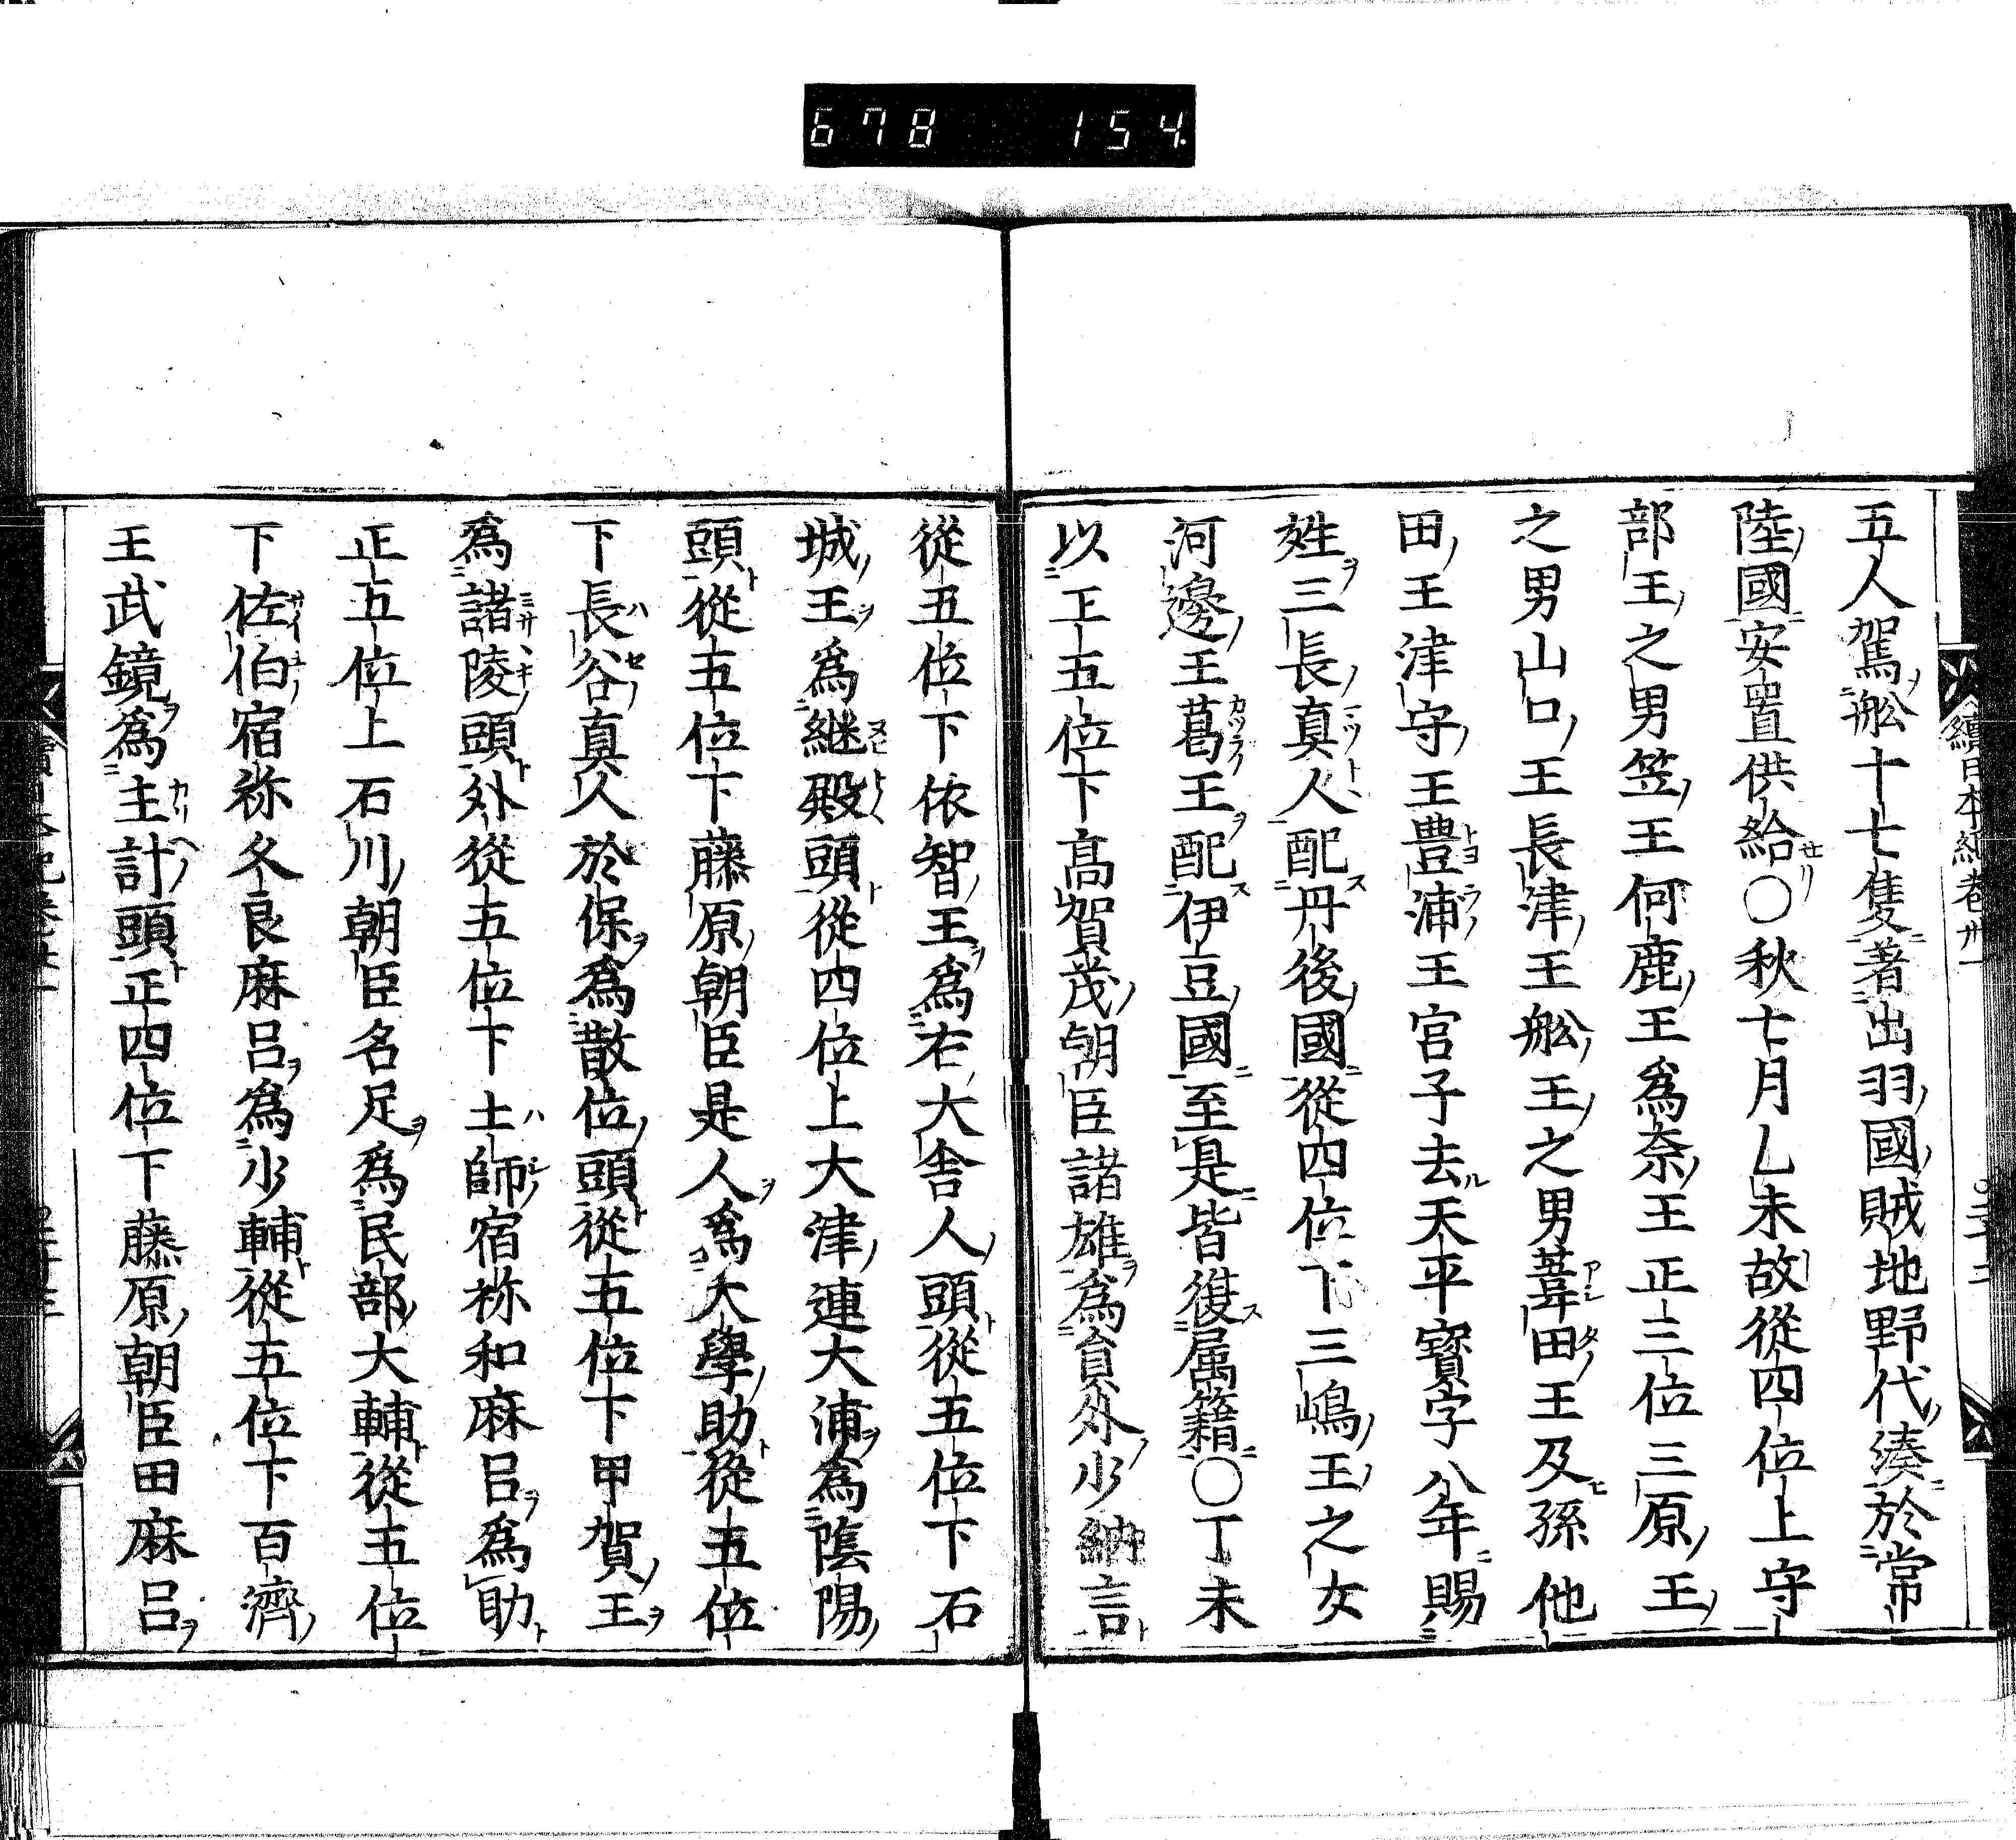 678 154
續日本紀卷卅一
五人駕舩十七隻著出羽國賊地野代湊於常
陸國安置供給○秋七月乙未故從四位上守
部王之男笠王何鹿王爲奈王正三位三原王
之男山口王長津王舩王之男葦田王及孫他
田王津守王豊浦王宮子去天平寳字八年賜
姓三長真人配丹後國從四位下三嶋王之女
河邊王葛王配伊豆國至是皆復属籍○丁未
以正五位下高賀茂朝臣諸雄爲員外少納言
從五位下依智王爲右大舎人頭從五位下石
城王爲継殿頭從四位上大津連大浦爲陰陽
頭從五位下藤原朝臣是人爲大學助從五位
下長谷真人於保爲散位頭從五位下甲賀王
爲諸陵頭外從五位下土師宿祢和麻呂爲助
正五位上石川朝臣名足爲民部大輔從五位
下佐伯宿祢久良麻呂爲少輔從五位下百濟
王武鏡爲主計頭正四位下藤原朝臣田麻呂